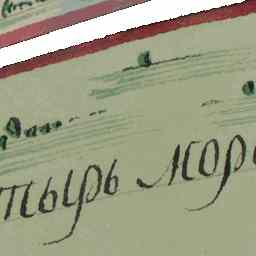 тырь мор